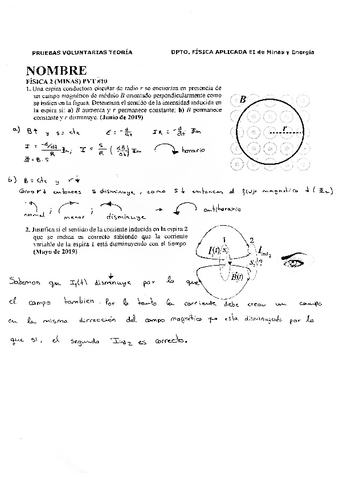 PRUEBAS VOLUNTARIAS TEORÍA DPTO. FÍSICA APLICADA EI de Minas y Energía
NOMBRE
FÍSICA 2 (MINAS) PVT #10
1. Una espira conductora circular de radio r se encuentra en presencia de
un campo magnético de módulo B orientado perpendicularmente como
se indica en la figura. Determina el sentido de la intensidad inducida en
la espira si: a) B aumenta y r permanece constante; b) B permanece
constante y r disminuye. (Junio de 2019)
B
r
a) B↑ y s = cte
horario
b) B = cte y r↓
Como r↓ entonces s disminuye, como s↓ entonces el flujo magnético ↓
normal; menor; disminuye → antihorario
2. Justifica si el sentido de la corriente inducida en la espira 2
que se indica es correcto sabiendo que la corriente
variable de la espira 1 está disminuyendo con el tiempo
(Mayo de 2019)
1 2
I(t)
B(t)
Sabemos que I₁(t) disminuye por lo que
el campo tambien. Por lo tanto la corriente debe crear un campo
en la misma dirección del campo magnético que esta disminuyendo por lo
que si, el segundo Iind2 es correcto.